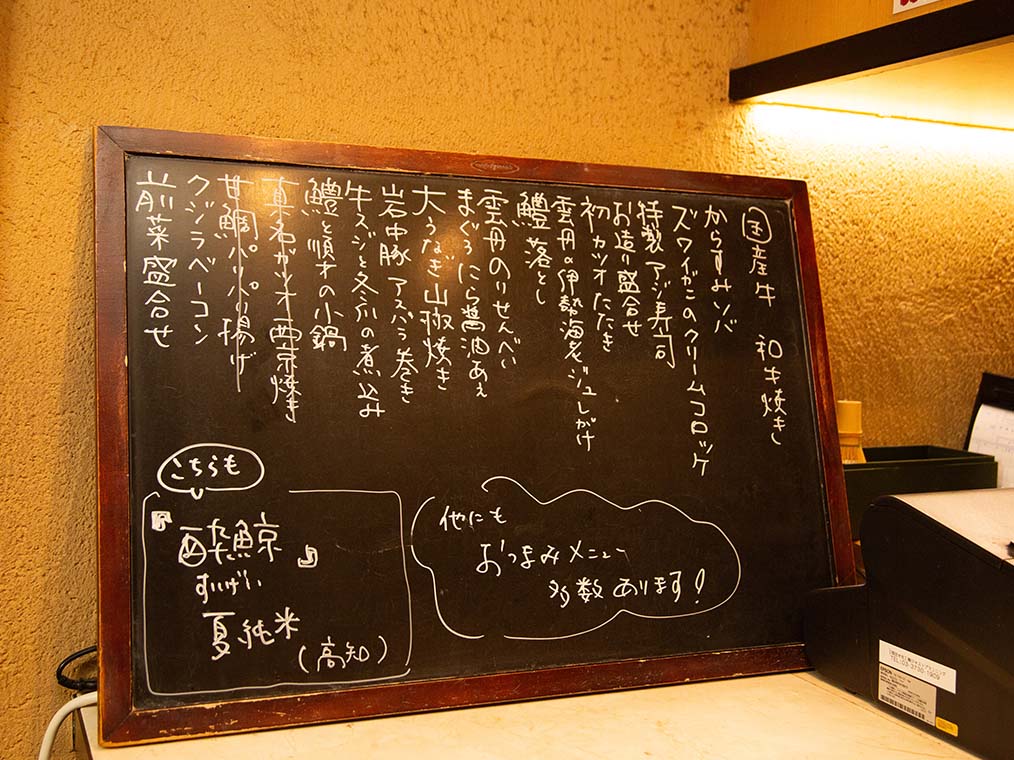 国産牛 和牛焼き
からすみソバ
ズワイガニのクリームコロッケ
特製アジ寿司
お造り盛合せ
初カツオたたき
雲丹の伊勢海老ジュレがけ
鱧落とし
雲丹のりせんべい
まぐろにら醤油あえ
大うなぎ山椒焼き
岩中豚アスパラ巻き
牛スジと冬瓜の煮込み
鱧と順才の小鍋
真名ガツオ西京焼き
甘鯛パリパリ揚げ
クジラベーコン
前菜盛合せ
こちらも
『酔鯨』
すいげい
夏純米
(高知)
他にも
おつまみメニュー
多数あります!
EPSON